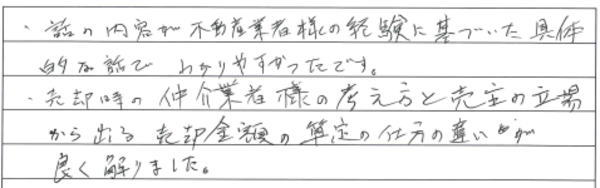 ・話の内容が不動産業者様の経験に基づいた具体
的な話で わかりやすかったです。
・売却時の仲介業者様の考え方と売主の立場
から出る売却金額の算定の仕方の違いが
良く解りました。